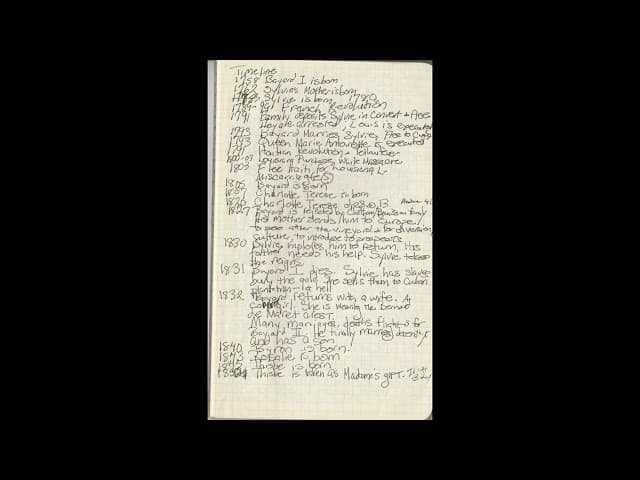 Timeline
1758 Bayard I is born
1762 Sylvie's Mother is born
Sylvie is born 1780
1789-99 French Revolution
1791 Family deposits Sylvie in Convent + flees
arrested, Louis is executed
1793 Bayard Marries Sylvie, flee to
1793 Queen Marie Antoinette is executed
1791 Haitian Revolution
Louisiana Purchase, White Massacre
1803 Flee Haiti for Louisiana
Miscarriage(s)
1805 Bayard is Born
1807 Charlotte Terese is born
1820 Charlotte Terese dies
1827 Bayard is rejected by family
His mother sends him to Europe/
to see after the vineyards for diversion,
culture, to introduce to prospects.
1830 Sylvie implores him to return. His
father needs his help. Sylvie takes
the reigns
1831 Bayard I dies. Sylvie has slaves
bury the gold she sells them to Cuban
plantation - hell
1832 Bayard returns with a wife. A
girl. She is wearing the
de Maret crest.
Many marriages, deaths for
Bayard II. He finally marries
and has a son
1840 Byron is born.
1843 is born
1845 is born
Thisbe is taken as Madame's gift.